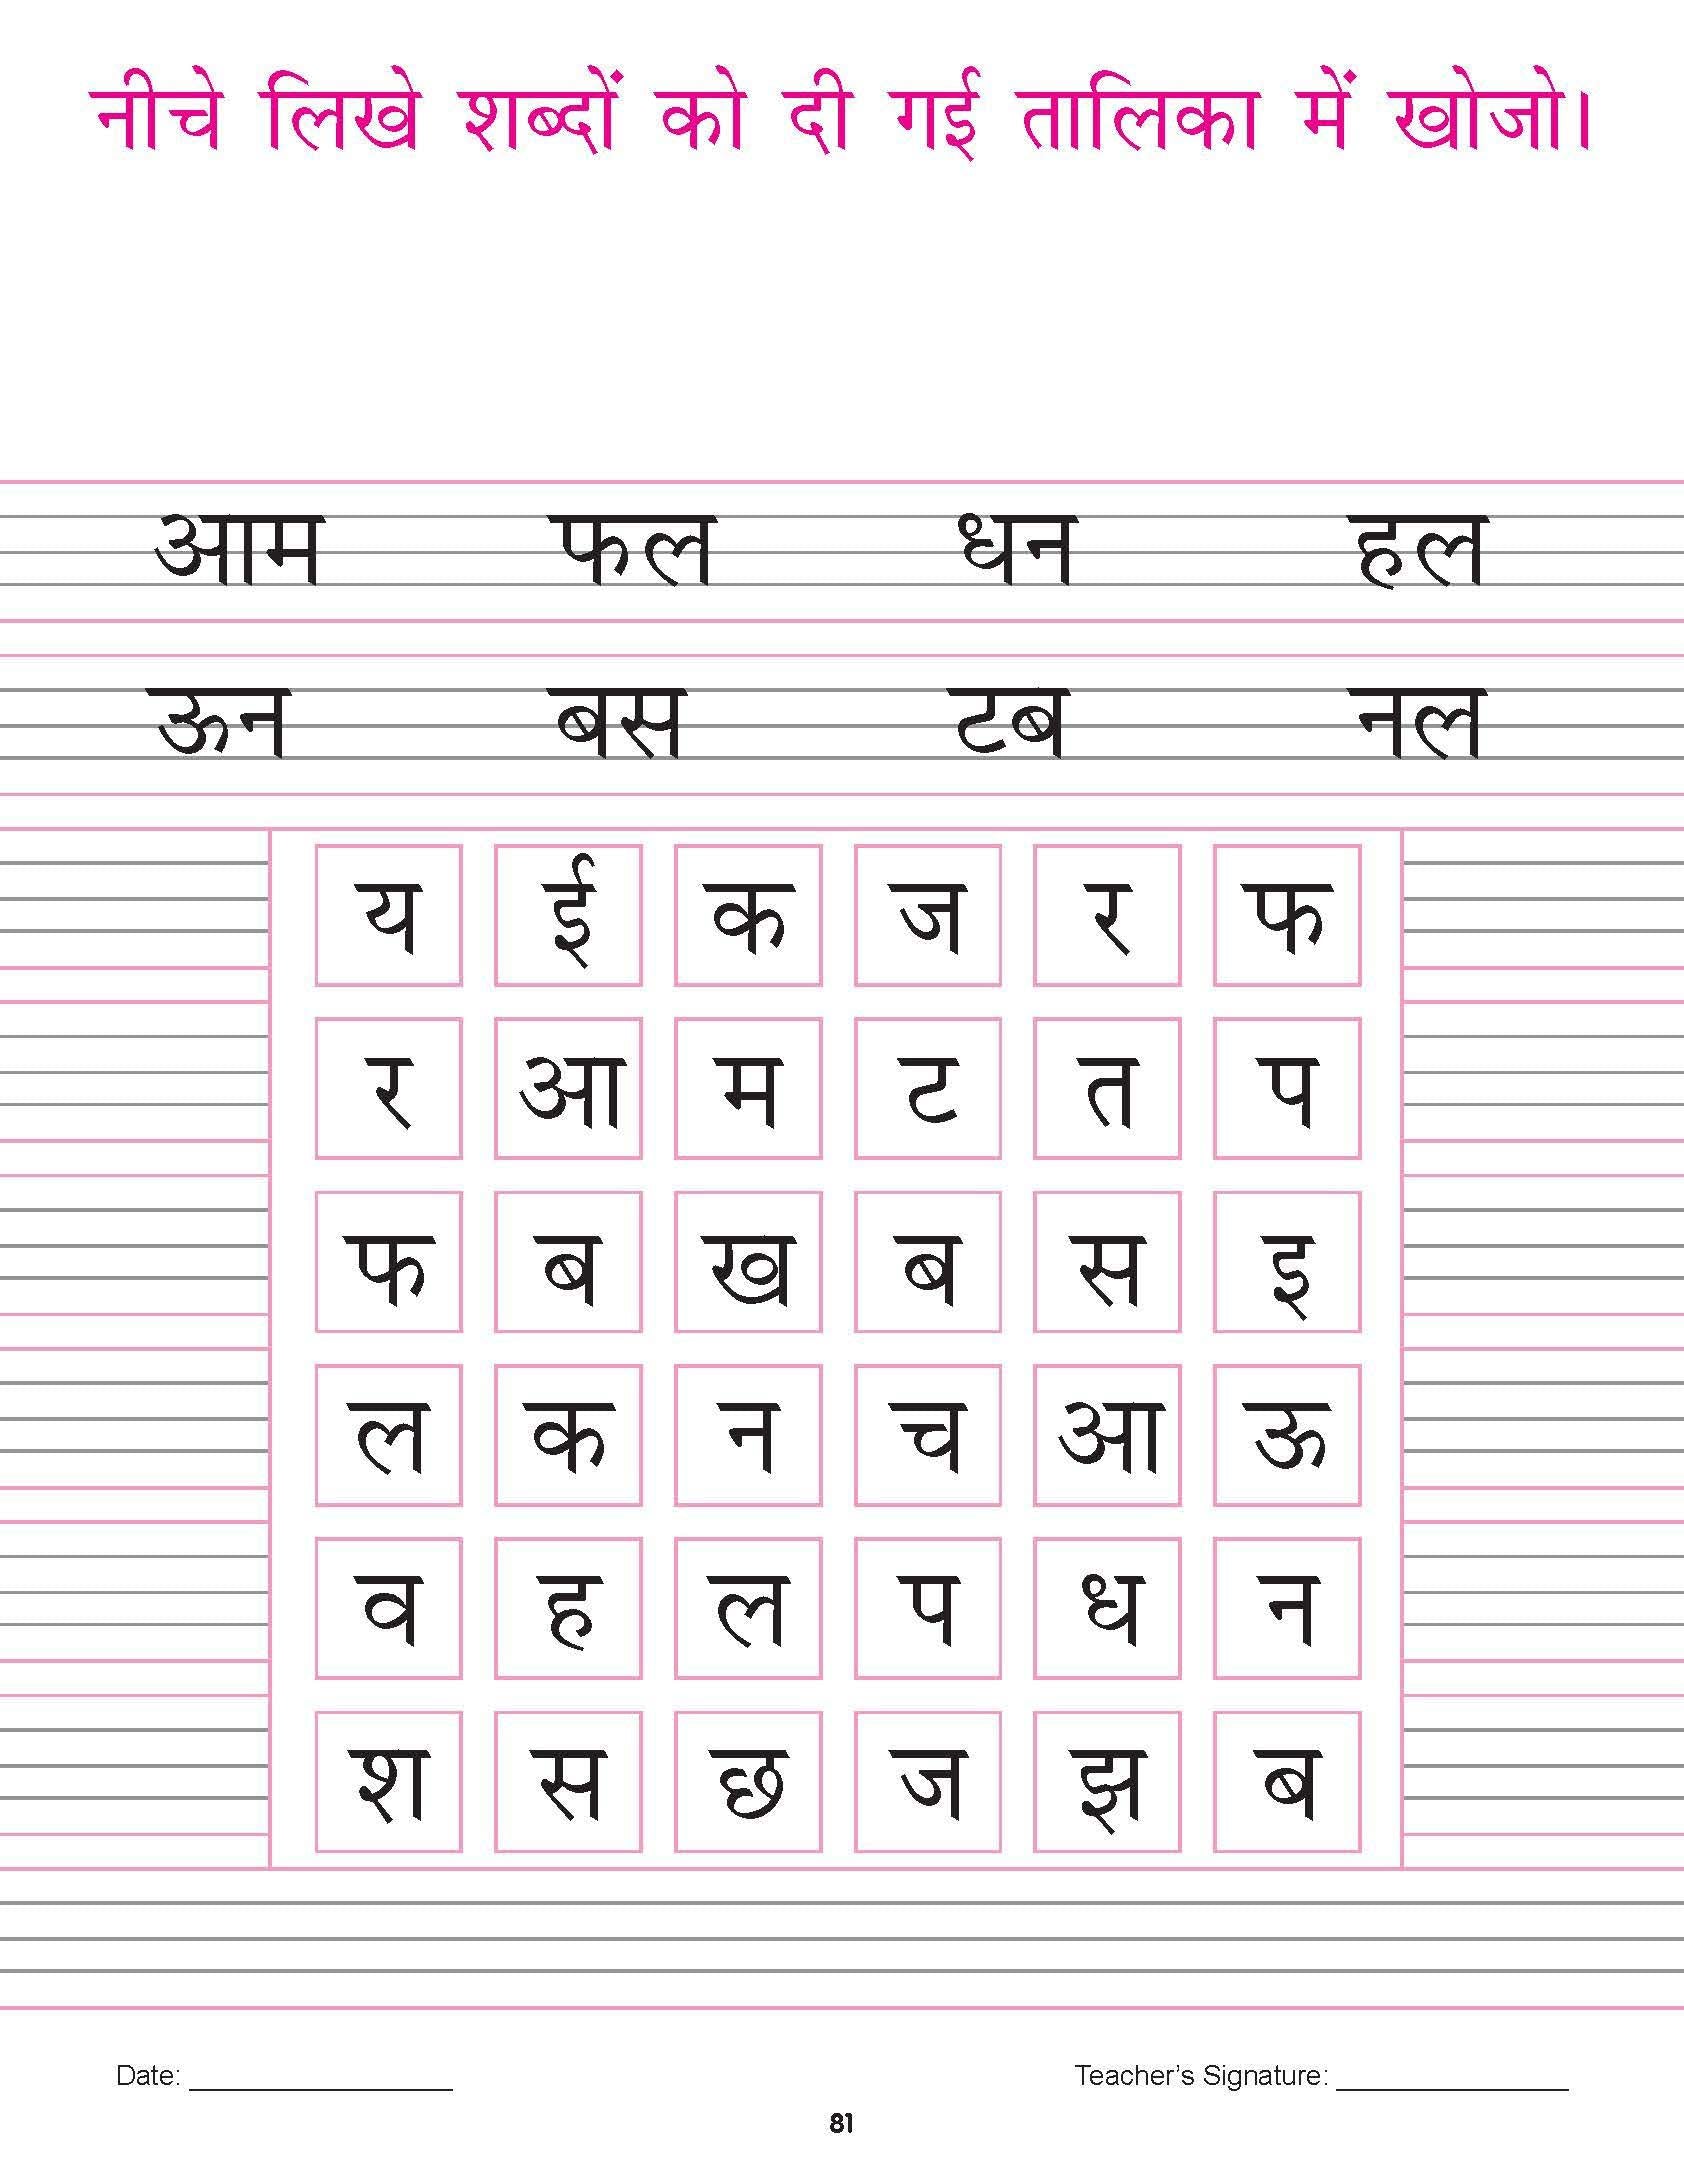 नीचे लिखे शब्दों को दी गई तालिका में खोजो।
आम फल धन हल
ऊन बस टब नल
य ई क ज र फ
र आ म ट त प
फ ब ख ब स इ
ल क न च आ ऊ
व ह ल प ध न
श स छ ज झ ब
Date: ________________ Teacher’s Signature: ______________
81